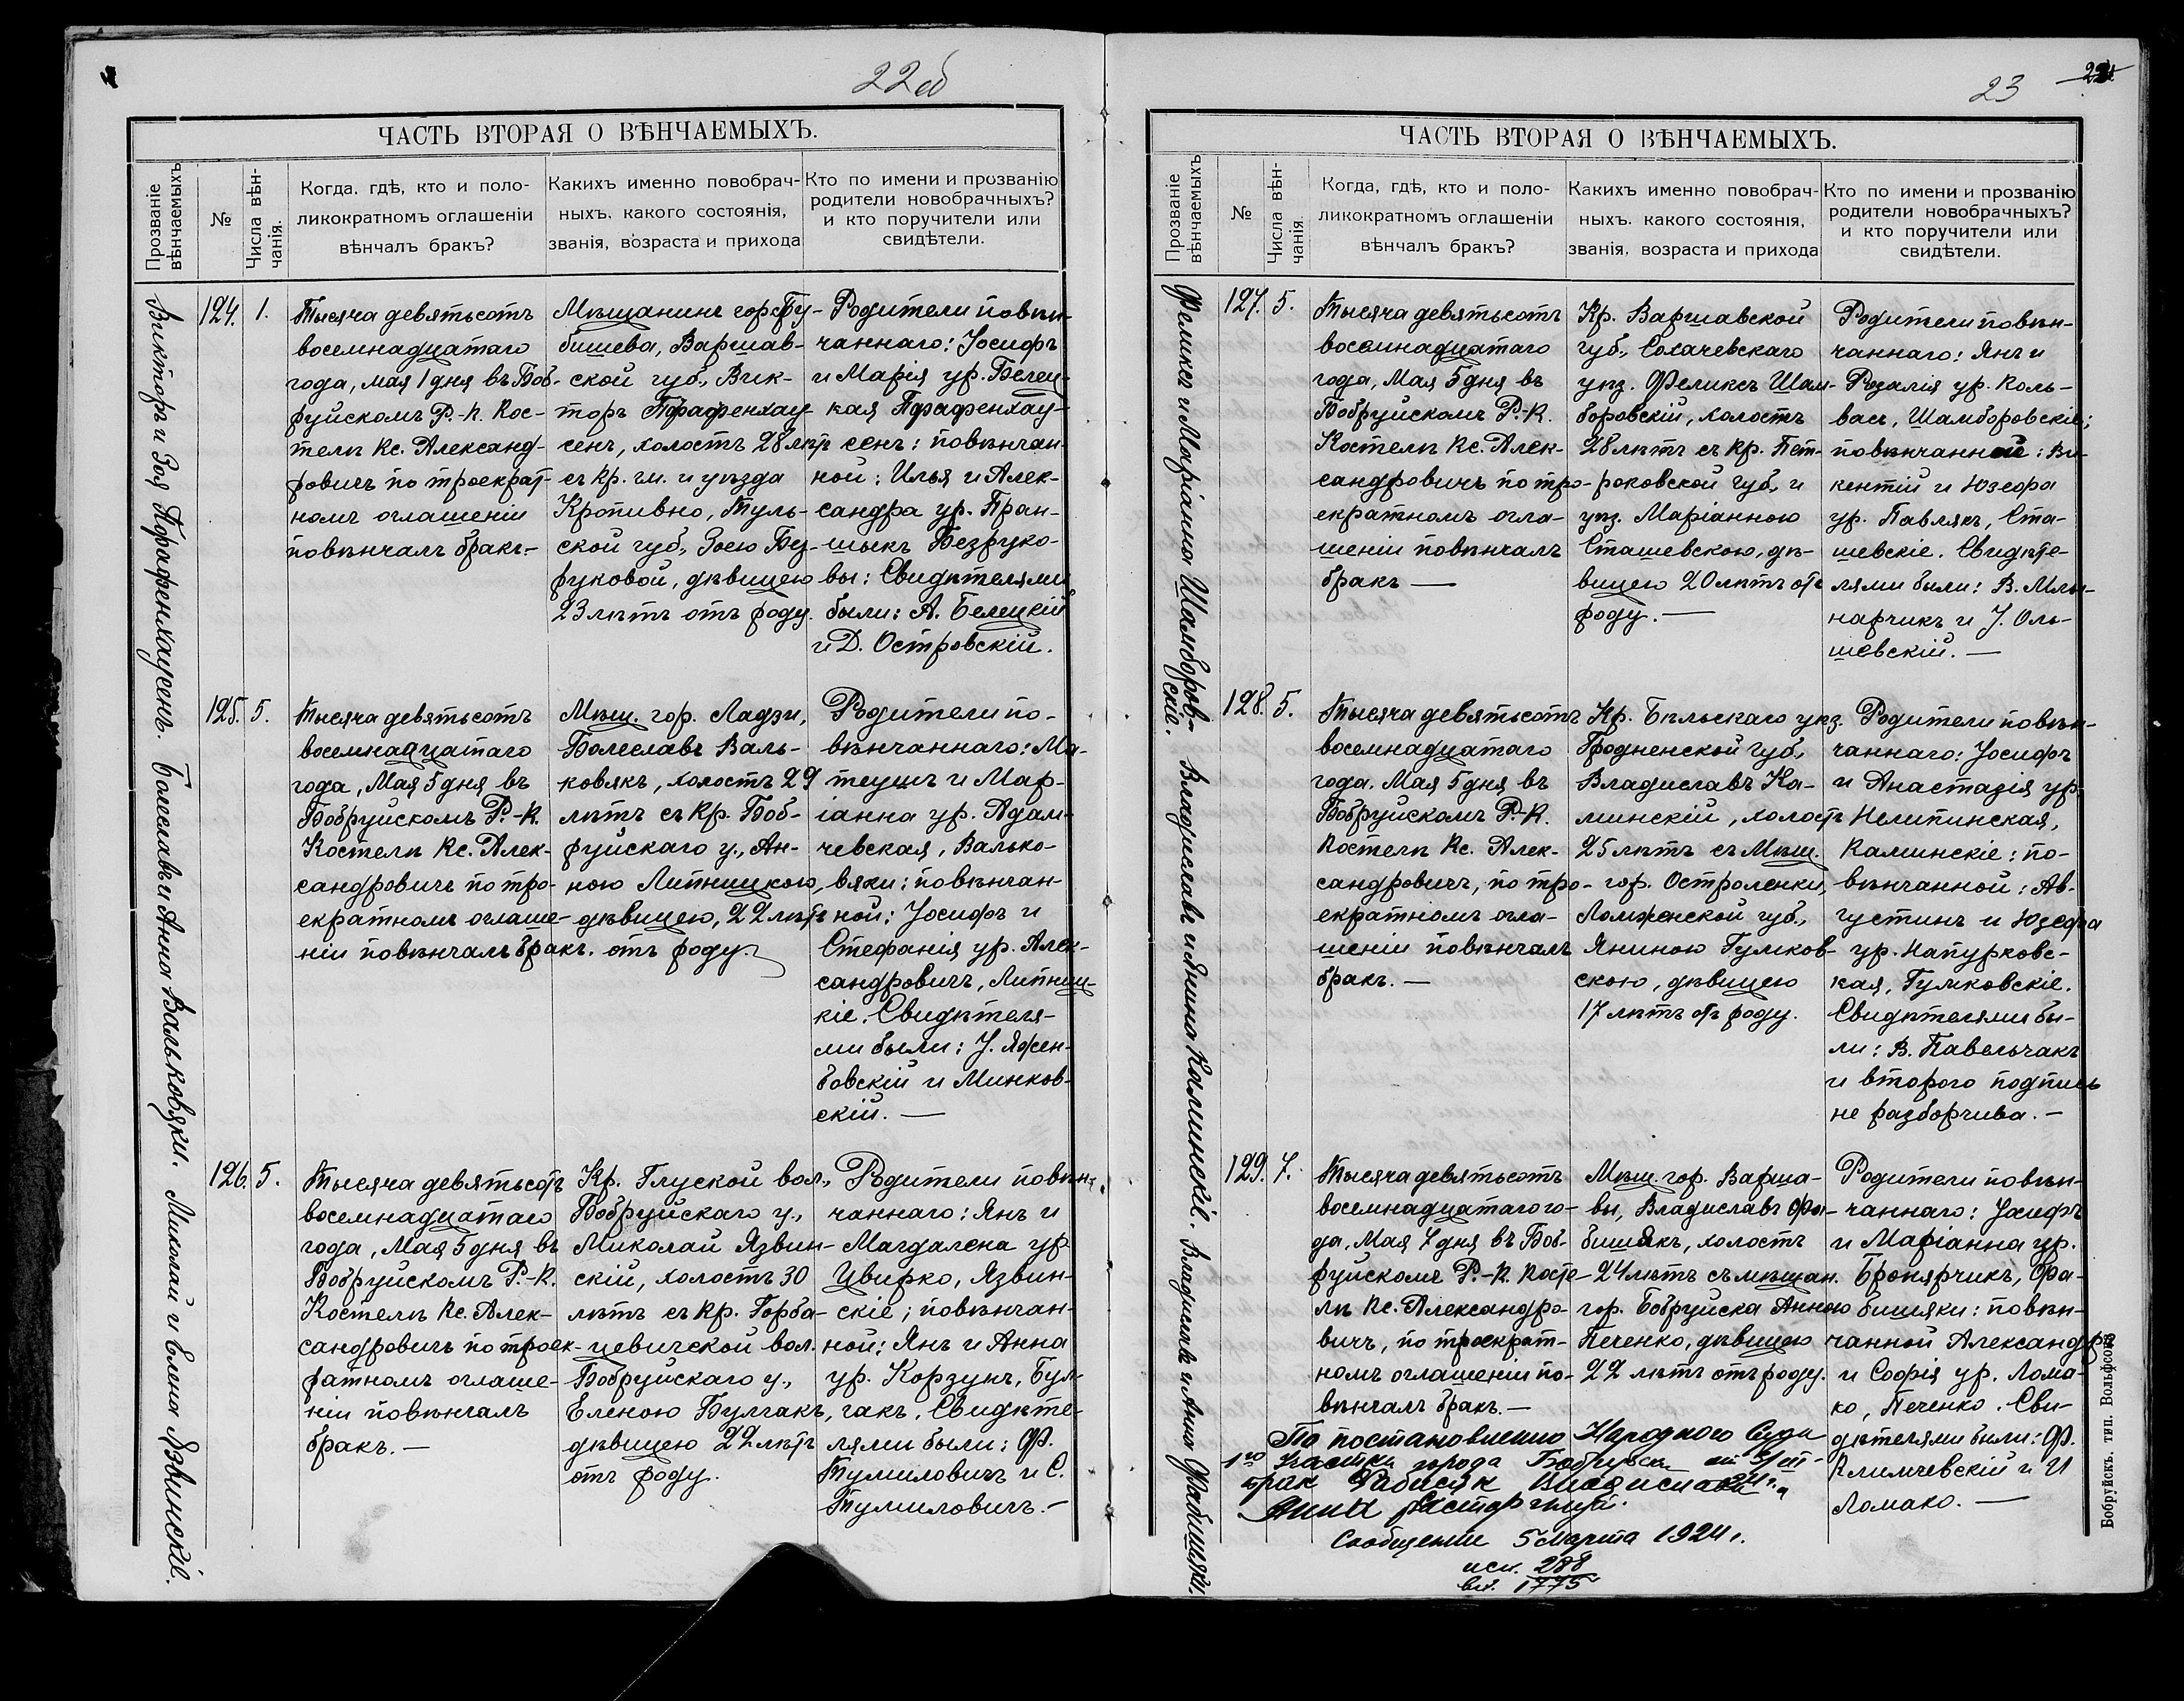 22об
ЧАСТЬ ВТОРАЯ О ВѢНЧАЕМЫХЪ.
Прозваніе вѣнчаемыхъ
№
Числа вѣн-
чанія.
Когда, гдѣ, кто и поло-
ликократномъ оглашеніи
вѣнчалъ бракъ?
Какихъ именно повобрач-
ныхъ, какого состоянія,
званія, возраста и прихода
Кто по имени и прозванію
родители новобрачныхъ?
и кто поручители или
свидѣтели.
Викторъ и Зоя Пфафенхаусенъ.
124.
1.
Тысяча девятьсотъ
восемнадцатаго
года, мая 1 дня въ Боб-
руйскомъ Р.-К. Кос-
телѣ Кс. Александ-
ровичъ по троекрат-
номъ оглашеніи
повѣнчалъ бракъ.-
Мѣщанинъ гор.
бишева, Варшав-
ской губ., Вик-
торъ Пфафенхау-
сенъ, холостъ 28 лѣтъ
съ кр. гм. и уѣзда
Кропивно, Туль-
ской губ., Зоею Без-
руковой, дѣвицею
23 лѣтъ отъ роду.
Родители повѣн-
чаннаго: Іосифъ
и Марія ур. Белец-
кая Пфафенхау-
сенъ: повѣнчан-
ной: Илья и Алек-
сандра ур. Пран-
шыкъ Безруко-
вы: Свидѣтелями
были: А. Белецкій
и Д. Островскій.
Болеславъ и Анна Вальковяки.
125.
5.
Тысяча девятьсотъ
восемнадцатаго
года, Мая 5 дня въ
Бобруйскомъ Р.-К.
Костелѣ Кс. Алек-
сандровичъ по тро-
екратномъ оглаше-
ніи повѣнчалъ бракъ.
Мѣщ. гор. Ладзи,
Болеславъ Валь-
ковякъ, холостъ 29
лѣтъ съ кр. Боб-
руйскаго у., Ан-
ною Липницкою,
дѣвицею, 22 лѣтъ
отъ роду.
Родители по-
вѣнчаннаго: Ма-
теушъ и Мар-
іанна ур. Адам-
чевская, Валько-
вяки: повѣнчан-
ной: Іосифъ и
Стефанія ур. Алек-
сандровичъ, Липниц-
кіе. Свидѣтеля-
ми были: І. Яжем-
бовскій и Минков-
скій. —
Миколай и Елена Язвинскіе.
126.
5.
Тысяча девятьсотъ
восемнадцатаго
года, Мая 5 дня въ
Бобруйскомъ Р.-К.
Костелѣ Кс. Алек-
сандровичъ по троек-
ратномъ оглаше-
ніи повѣнчалъ
бракъ. —
Кр. Глуской вол.,
Бобруйскаго у.,
Миколай Язвин-
скій, холостъ 30
лѣтъ съ кр. Горба-
цевичской вол.
Бобруйскаго у.,
Еленою Булгакъ,
дѣвицею 22 лѣтъ
отъ роду.
Родители повѣн-
чаннаго: Янъ и
Магдалена ур.
Цвирко, Язвин-
скіе; повѣнчан-
ной: Янъ и Анна
ур. Корзунъ, Бул-
гакъ. Свидѣте-
лями были: Ф.
Тумиловичъ и С.
Тумиловичъ.-
23
ЧАСТЬ ВТОРАЯ О ВѢНЧАЕМЫХЪ.
Прозваніе вѣнчаемыхъ
№
Числа вѣн-
чанія.
Когда, гдѣ, кто и поло-
ликократномъ оглашеніи
вѣнчалъ бракъ?
Какихъ именно повобрач-
ныхъ, какого состоянія,
званія, возраста и прихода
Кто по имени и прозванію
родители новобрачныхъ?
и кто поручители или
свидѣтели.
Феликсъ и Маріанна Шамборов-
скіе.
127.
5.
Тысяча девятьсотъ
восемнадцатаго
года, Мая 5 дня въ
Бобруйскомъ Р.-К.
Костелѣ Кс. Алек-
сандровичъ по тро-
екратномъ огла-
шеніи повѣнчалъ
бракъ —
Кр. Варшавской
губ., Сохачевскаго
уѣз. Феликсъ Шам-
боровскій, холостъ
28 лѣтъ съ кр. Пет-
роковской губ., и
уѣз. Маріанною
Сташевскою, дѣ-
вицею 20 лѣтъ отъ
роду. —
Родители повѣн-
чаннаго: Янъ и
Розалія ур. Коль-
васъ, Шамборовскіе;
повѣнчанной: Ви-
кентій и Юзефа
ур. Павлякъ, Ста-
шевскіе. Свидѣте-
лями были: В. Млы-
нарчикъ и І. Оль-
шевскій. —
Владиславъ и Янина Каминскіе.
128.
5.
Тысяча девятьсотъ
восемнадцатаго
года, Мая 5 дня въ
Бобруйскомъ Р.-К.
Костелѣ Кс. Алек-
сандровичъ, по тро-
екратномъ огла-
шеніи повѣнчалъ
бракъ. —
Кр. Бѣльскаго уѣз.
Гродненской губ.,
Владиславъ Ка-
минскій, холостъ
25 лѣтъ съ Мѣщ.
гор. Остроленки,
Ломженской губ.,
Яниною Гумков-
скою, дѣвицею
17 лѣтъ отъ роду.
Родители повѣн-
чаннаго: Іосифъ
и Анастазія ур.
Нелипинская,
Каминскіе: по-
вѣнчанной: Ав-
густинъ и Юзефа
ур. Напурковс-
кая, Гумковскіе.
Свидѣтелями бы-
ли: В. Павельчакъ
и второго подпись
не разборчива. —
Владиславъ и Анна Фабишяки.
129.
7.
Тысяча девятьсотъ
восемнадцатаго го-
да, Мая 7 дня въ Боб-
руйскомъ Р.-К. Косте-
лѣ Кс. Александро-
вичъ, по троекрат-
номъ оглашеніи по-
вѣнчалъ бракъ. —
Мѣщ. гор. Варша-
вы, Владиславъ Фа-
бишякъ, холостъ
24 лѣтъ съ мѣщан.
гор. Бобруйска Анною
Печенко, дѣвицею
22 лѣтъ отъ роду.
Родители повѣн-
чаннаго: Іосифъ
и Маріанна ур.
Бронярчикъ, Фа-
бишяки: повѣн-
чанной Александръ
и Софія ур. Лома-
ко, Печенко. Сви-
дѣтелями были: Ф.
Климчевскій и И
Ломако. —
По постановлению Народного Суда
1го Участка города Бобруйска от
брак
Анна расторгнут.
Сообщение 5 марта 1924 г.
исх. 288
вх. 1775
Бобруйскъ. тип. Вольфсона